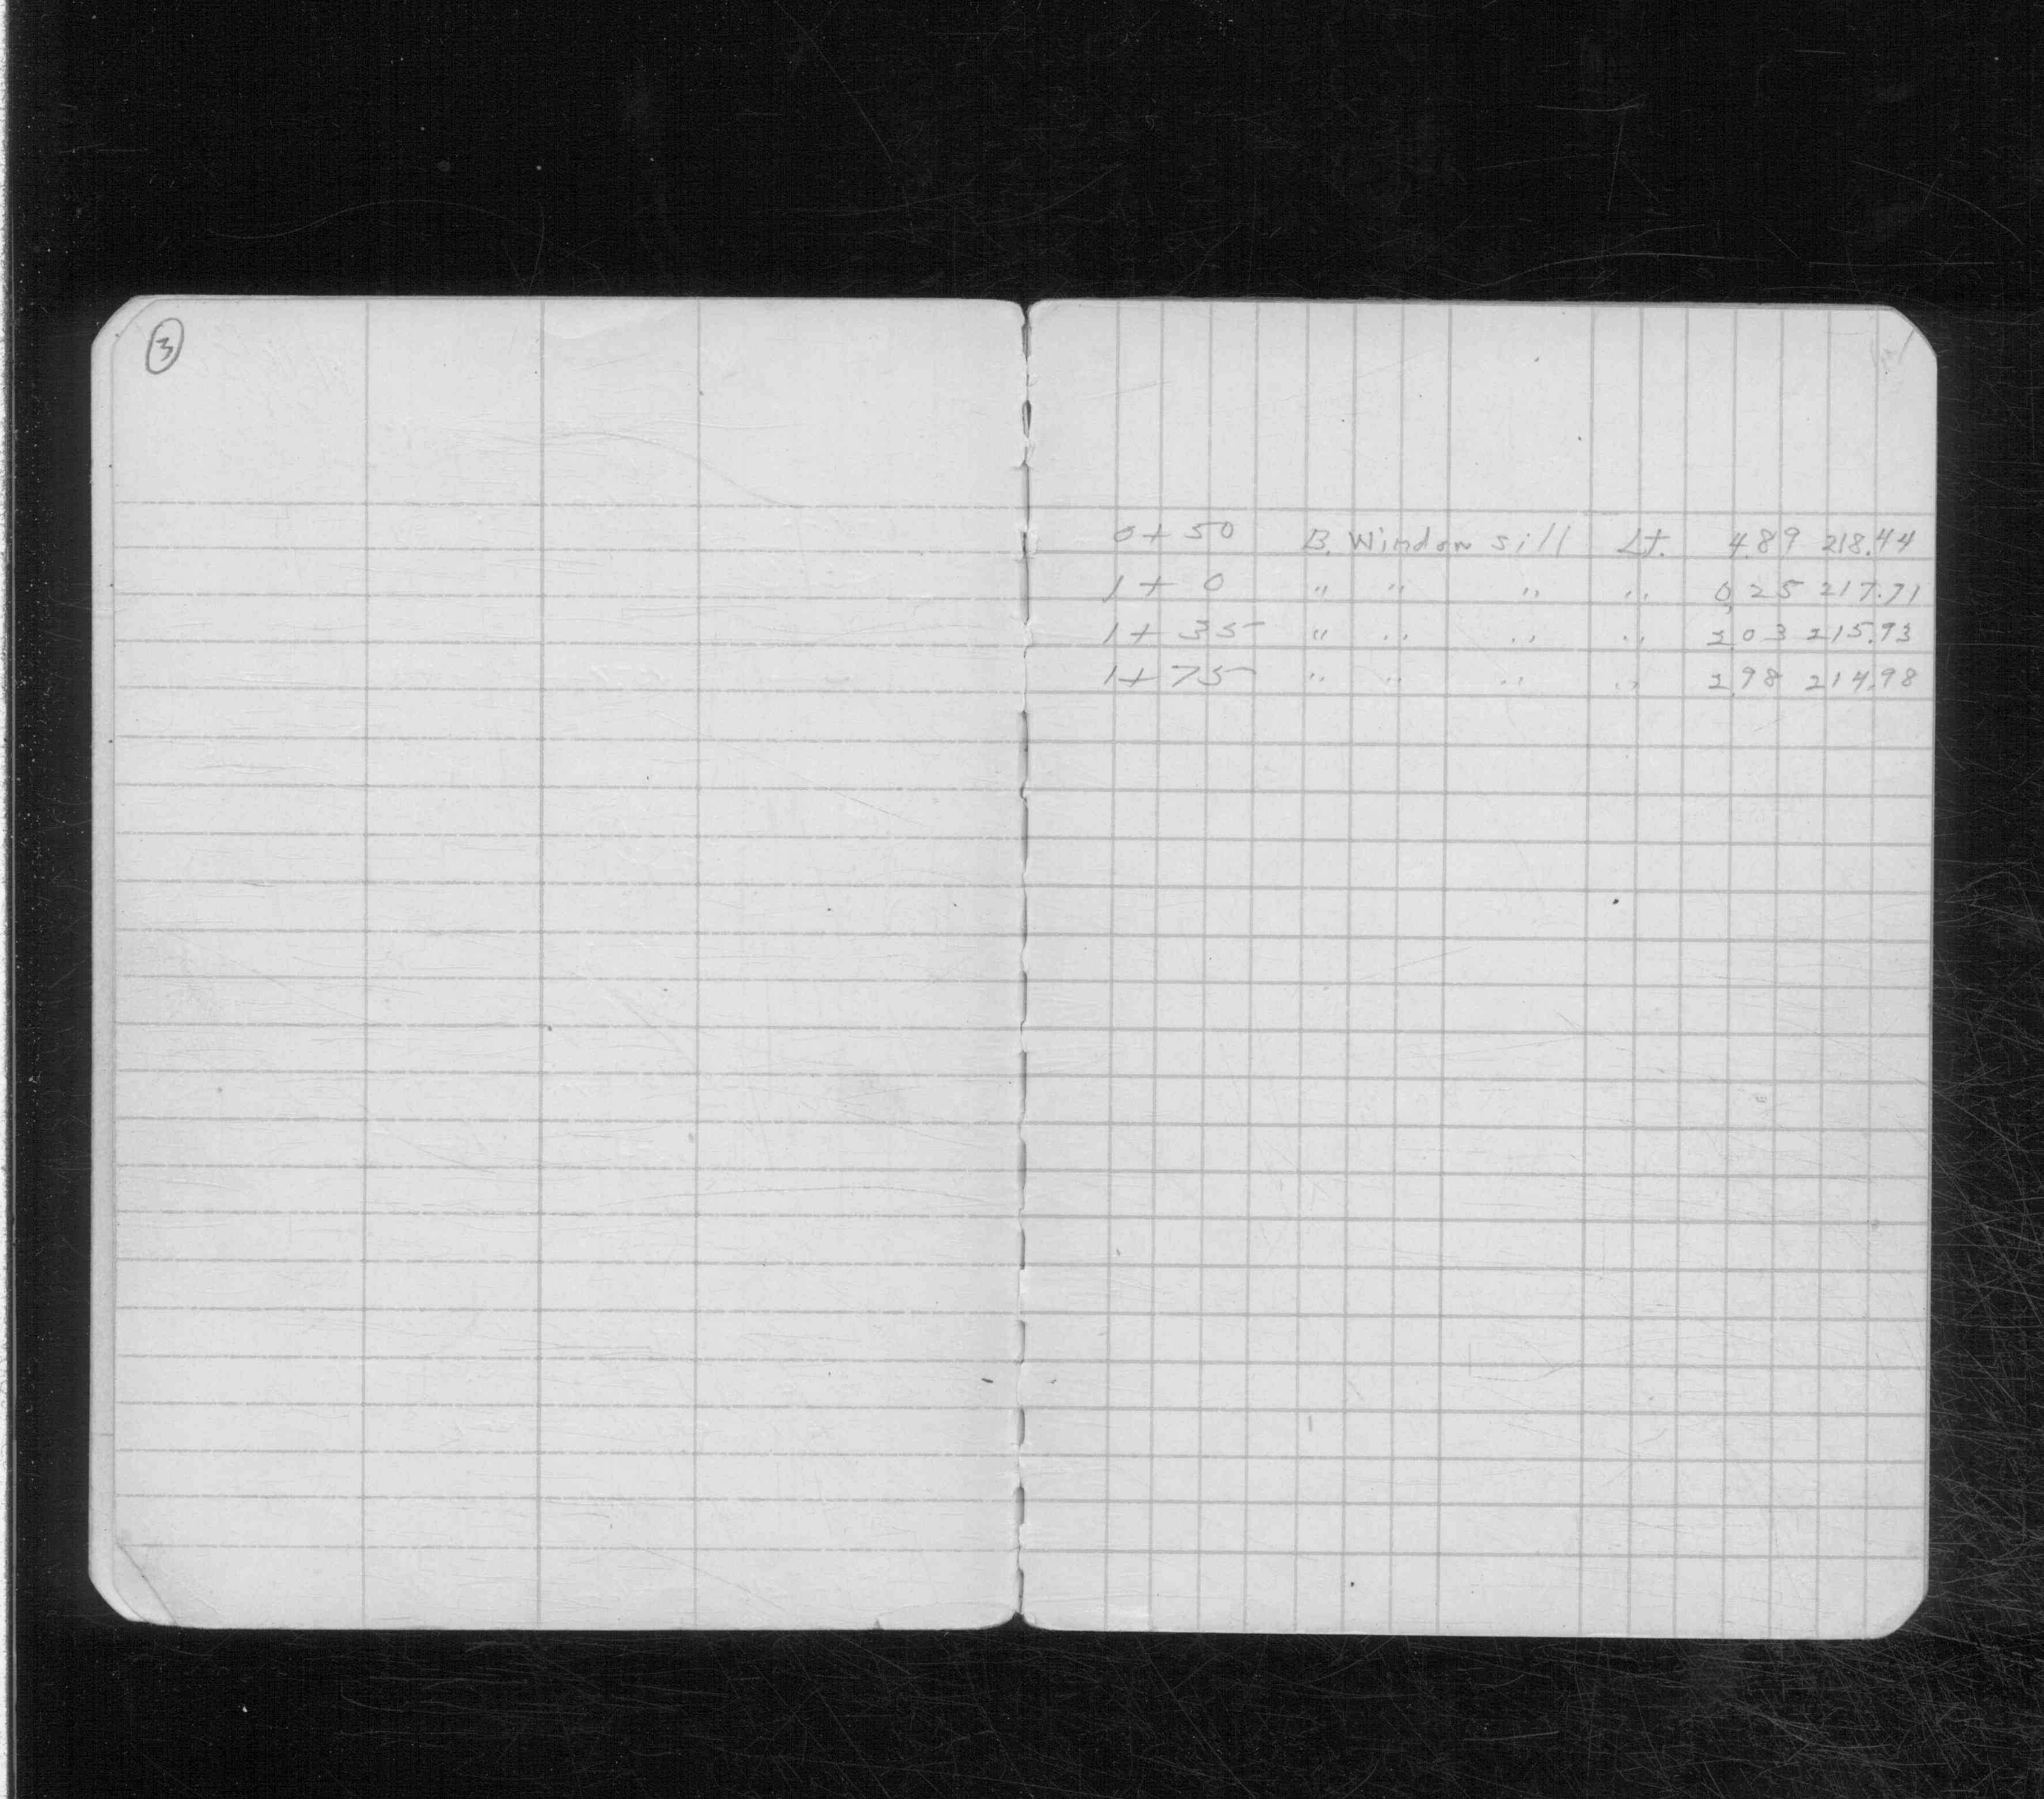 3
0+50 B. Window sill Lt. 4.89 218.44
1+0 " " " " 0.25 217.71
1+35 " " " " 2 03 215.93
1+75 " " " " 2.98 214.98